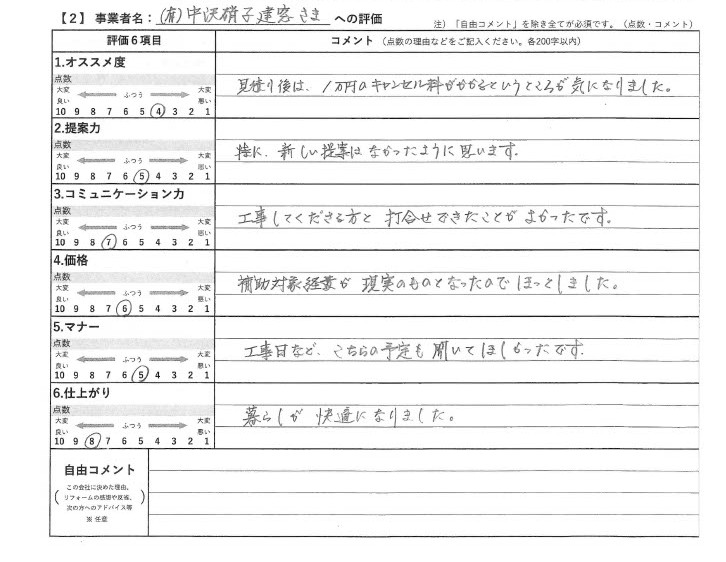 【2】事業者名：(有)中沢硝子建窓さま への評価
注）「自由コメント」を除き全てが必須です。（点数・コメント）
評価6項目 コメント（点数の理由などをご記入ください。各200字以内）
1.オススメ度
点数
大変 ふつう 大変
良い 悪い
10 9 8 7 6 5 4 3 2 1
見積り後は、1万円のキャンセル料がかかるというところが気になりました。
2.提案力
点数
大変 ふつう 大変
良い 悪い
10 9 8 7 6 5 4 3 2 1
特に、新しい提案はなかったように思います。
3.コミュニケーション力
点数
大変 ふつう 大変
良い 悪い
10 9 8 7 6 5 4 3 2 1
工事してくださる方と 打合せできたことが よかったです。
4.価格
点数
大変 ふつう 大変
良い 悪い
10 9 8 7 6 5 4 3 2 1
補助対象経費が 現実のものとなったので ほっとしました。
5.マナー
点数
大変 ふつう 大変
良い 悪い
10 9 8 7 6 5 4 3 2 1
工事日など、こちらの予定も 聞いてほしかったです。
6.仕上がり
点数
大変 ふつう 大変
良い 悪い
10 9 8 7 6 5 4 3 2 1
暮らしが 快適になりました。
自由コメント
この会社に決めた理由、
リフォームの感想や反省、
次の方へのアドバイス等
※ 任意